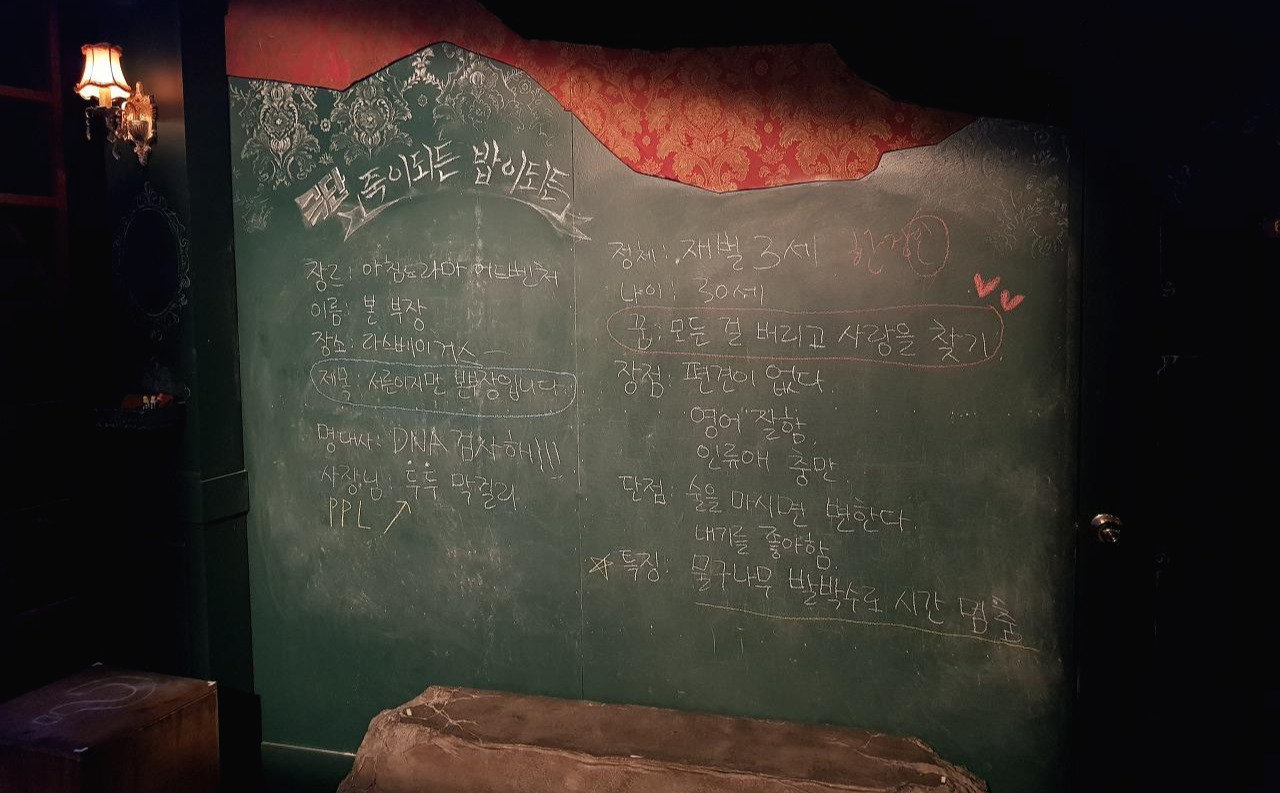 극단 죽이되든 밥이되든
장르: 아침드라마 어드벤처
이름: 본 부장
장소: 라스베이거스
제목: 서른이지만 본부장입니다.
명대사: DNA 검사해!!!
사장님: 투투 막걸리
PPL
정체: 재벌 3세
나이: 30세
꿈: 모든 걸 버리고 사랑을 찾기
장점: 편견이 없다.
영어 잘함.
인류애 충만.
단점: 술을 마시면 변한다.
내기를 좋아함.
특징: 물구나무 발박수로 시간 멈춤
?